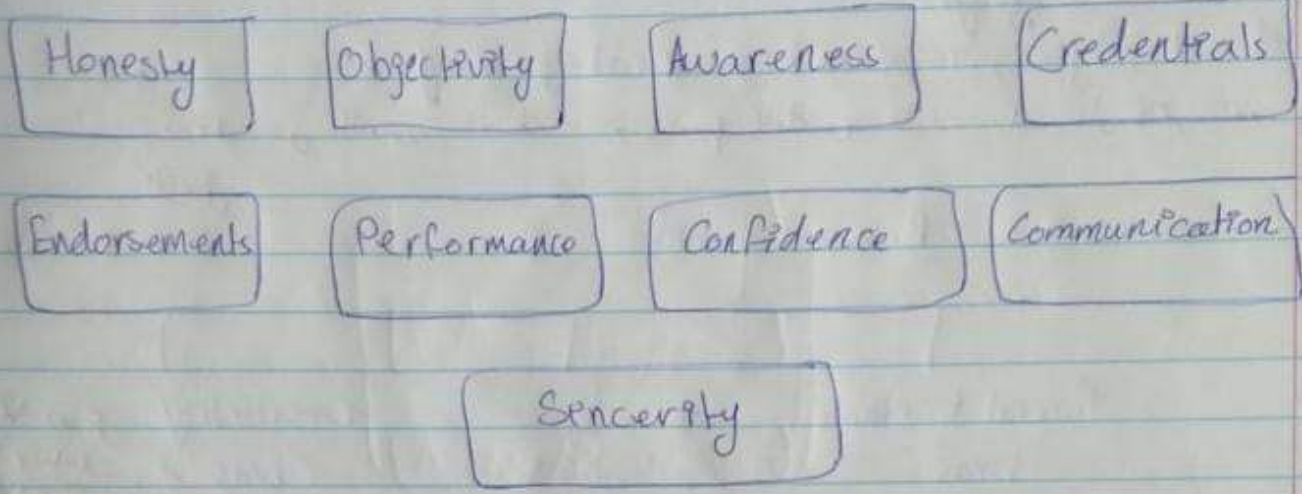 Honesty Obgectivity Awareness Credentials
Endorsements Performance Confidence Communication
Sencerity